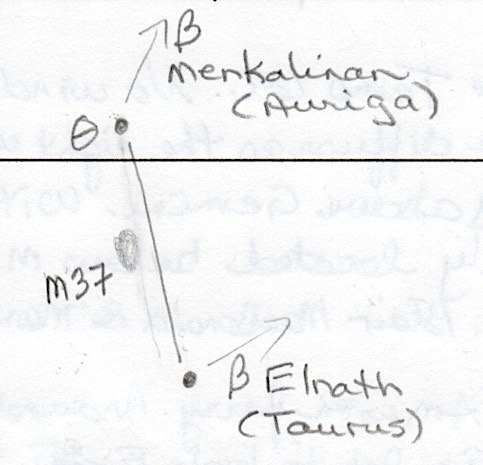 β
Menkalinan
(Auriga)
θ
M37
β Elnath
(Taurus)